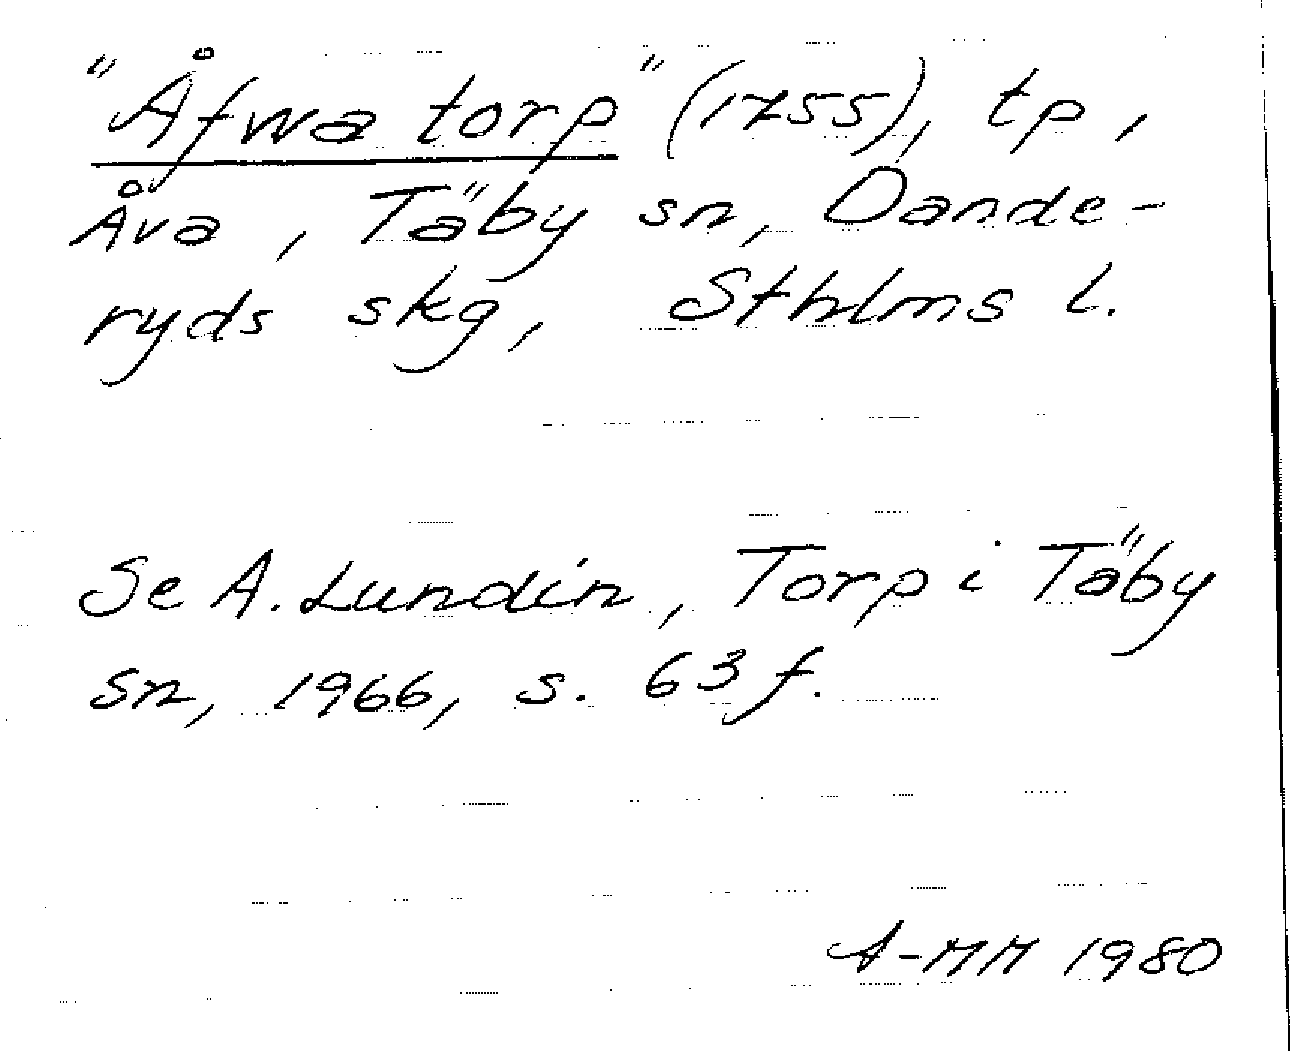 "Åfwa torp" (1755), tp,
Åva, Täby sn, Dande-
ryds skg, Sthlms l.
Se A. Lundin, Torp i Täby
sn, 1966, s. 63 f.
A-MM 1980